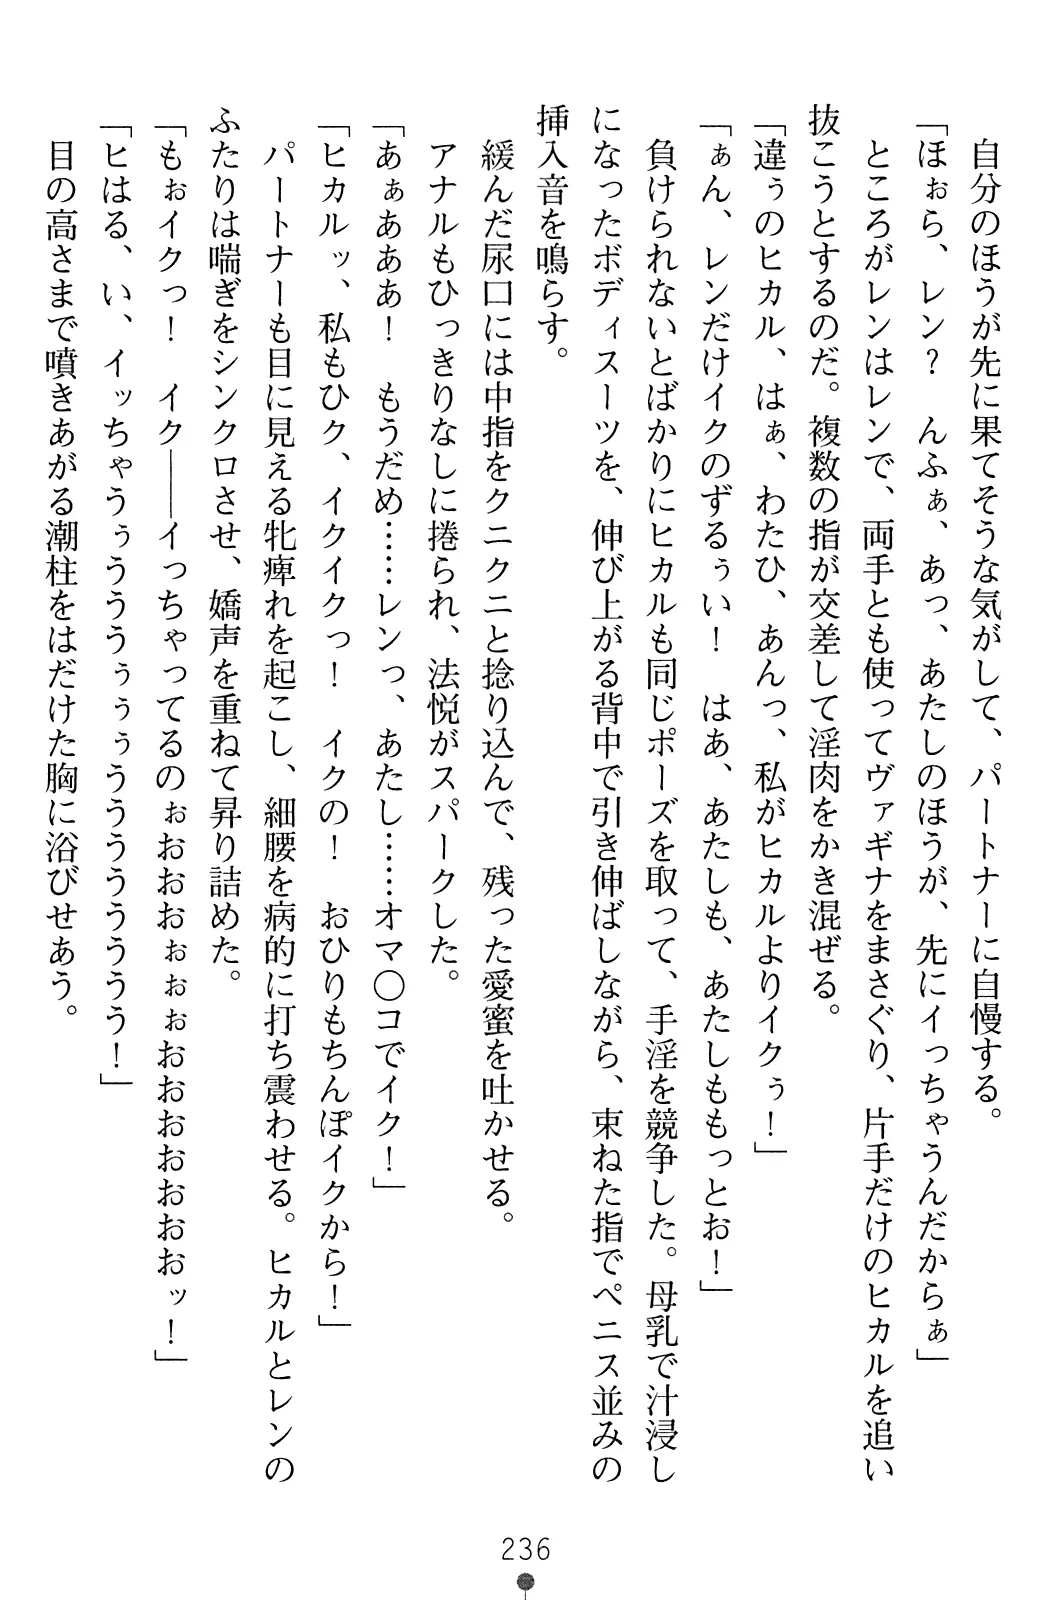 自分のほうが先に果てそうな気がして、パートナーに自慢する。
「ほぉら、レン？　んふぁ、あっ、あたしのほうが、先にイっちゃうんだからぁ」
ところがレンはレンで、両手とも使ってヴァギナをまさぐり、片手だけのヒカルを追い
抜こうとするのだ。複数の指が交差して淫肉をかき混ぜる。
「違ぅのヒカル、はぁ、わたひ、あんっ、私がヒカルよりイクぅ！」
「ぁん、レンだけイクのずるぅい！　はあ、あたしも、あたしももっとお！」
負けられないとばかりにヒカルも同じポーズを取って、手淫を競争した。母乳で汁浸し
になったボディスーツを、伸び上がる背中で引き伸ばしながら、束ねた指でペニス並みの
挿入音を鳴らす。
緩んだ尿口には中指をクニクニと捻り込んで、残った愛蜜を吐かせる。
アナルもひっきりなしに捲られ、法悦がスパークした。
「あぁあああ！　もうだめ……レンっ、あたし……オマ〇コでイク！」
「ヒカルッ、私もひク、イクイクっ！　イクの！　おひりもちんぽイクから！」
パートナーも目に見える牝痺れを起こし、細腰を病的に打ち震わせる。ヒカルとレンの
ふたりは喘ぎをシンクロさせ、嬌声を重ねて昇り詰めた。
「もぉイクっ！　イク――イっちゃってるのぉおおおぉぉぉおおおおおおおッ！」
「ヒはる、い、イッちゃうぅうううぅぅぅうううううううう！」
目の高さまで噴きあがる潮柱をはだけた胸に浴びせあう。
236